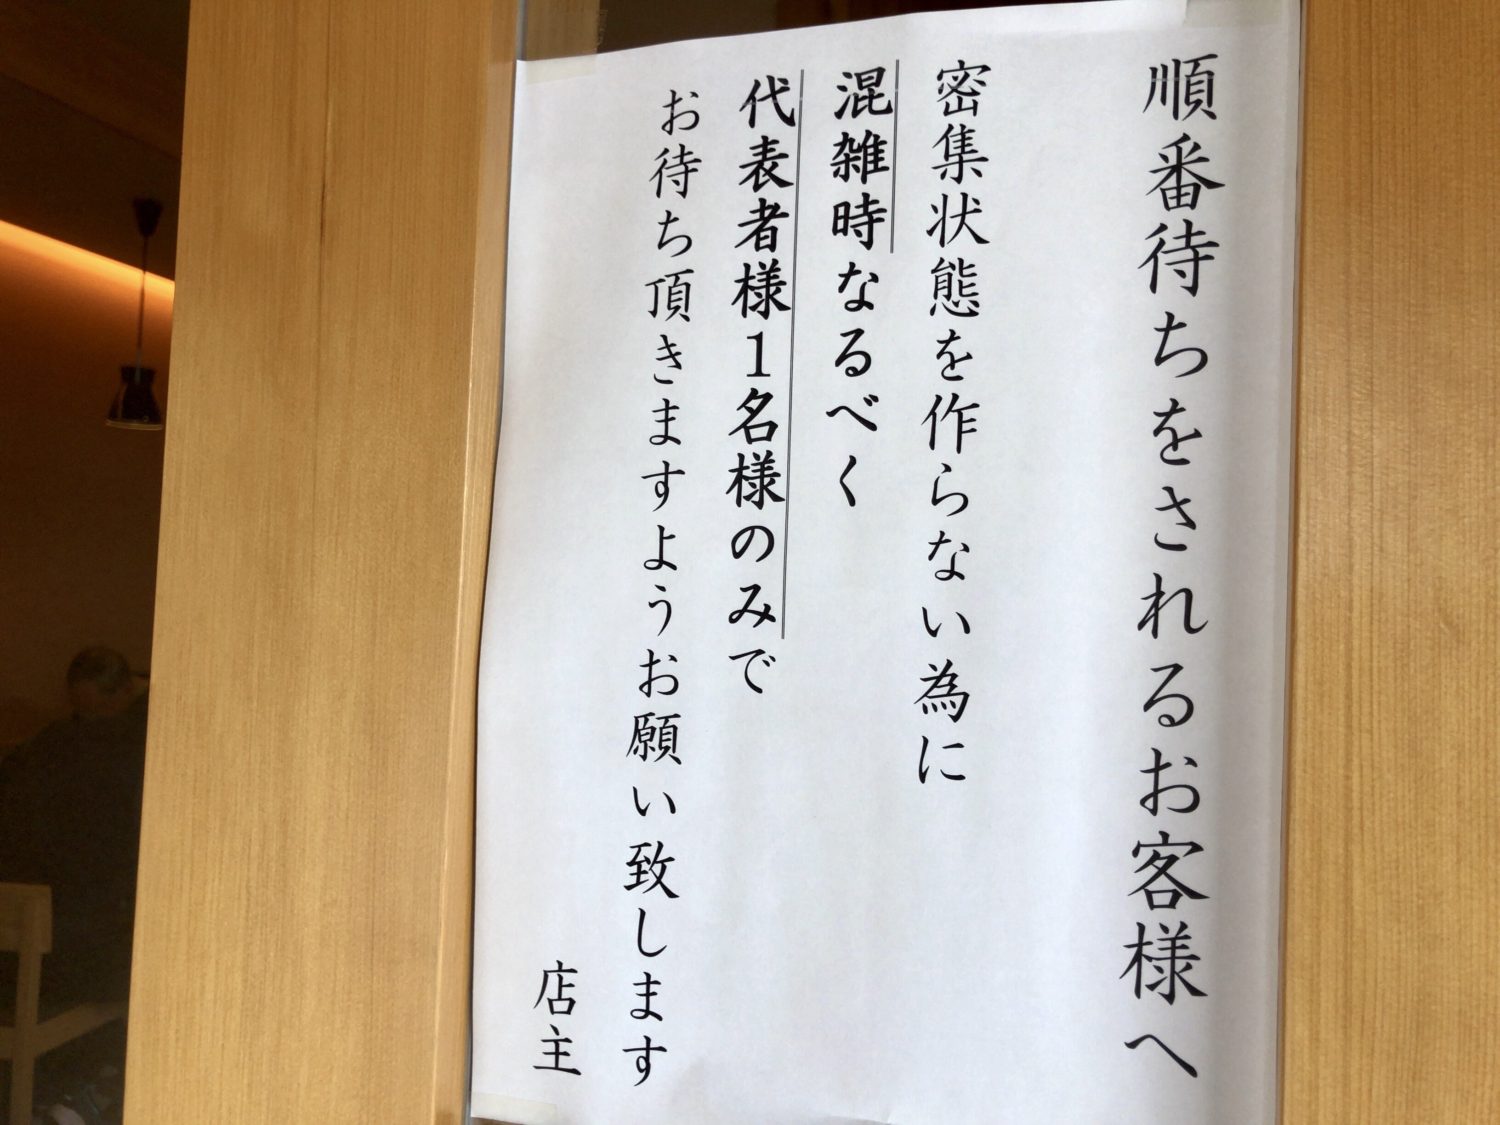 順番待ちをされるお客様へ
密集状態を作らない為に
混雑時なるべく
代表者様１名様のみで
お待ち頂きますようお願い致します
店主